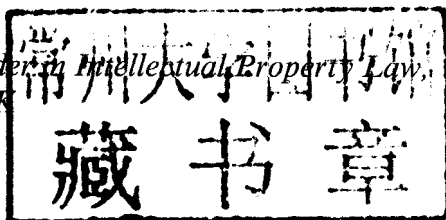 常州大学图书馆
in Intellectual Property Law,
藏书章